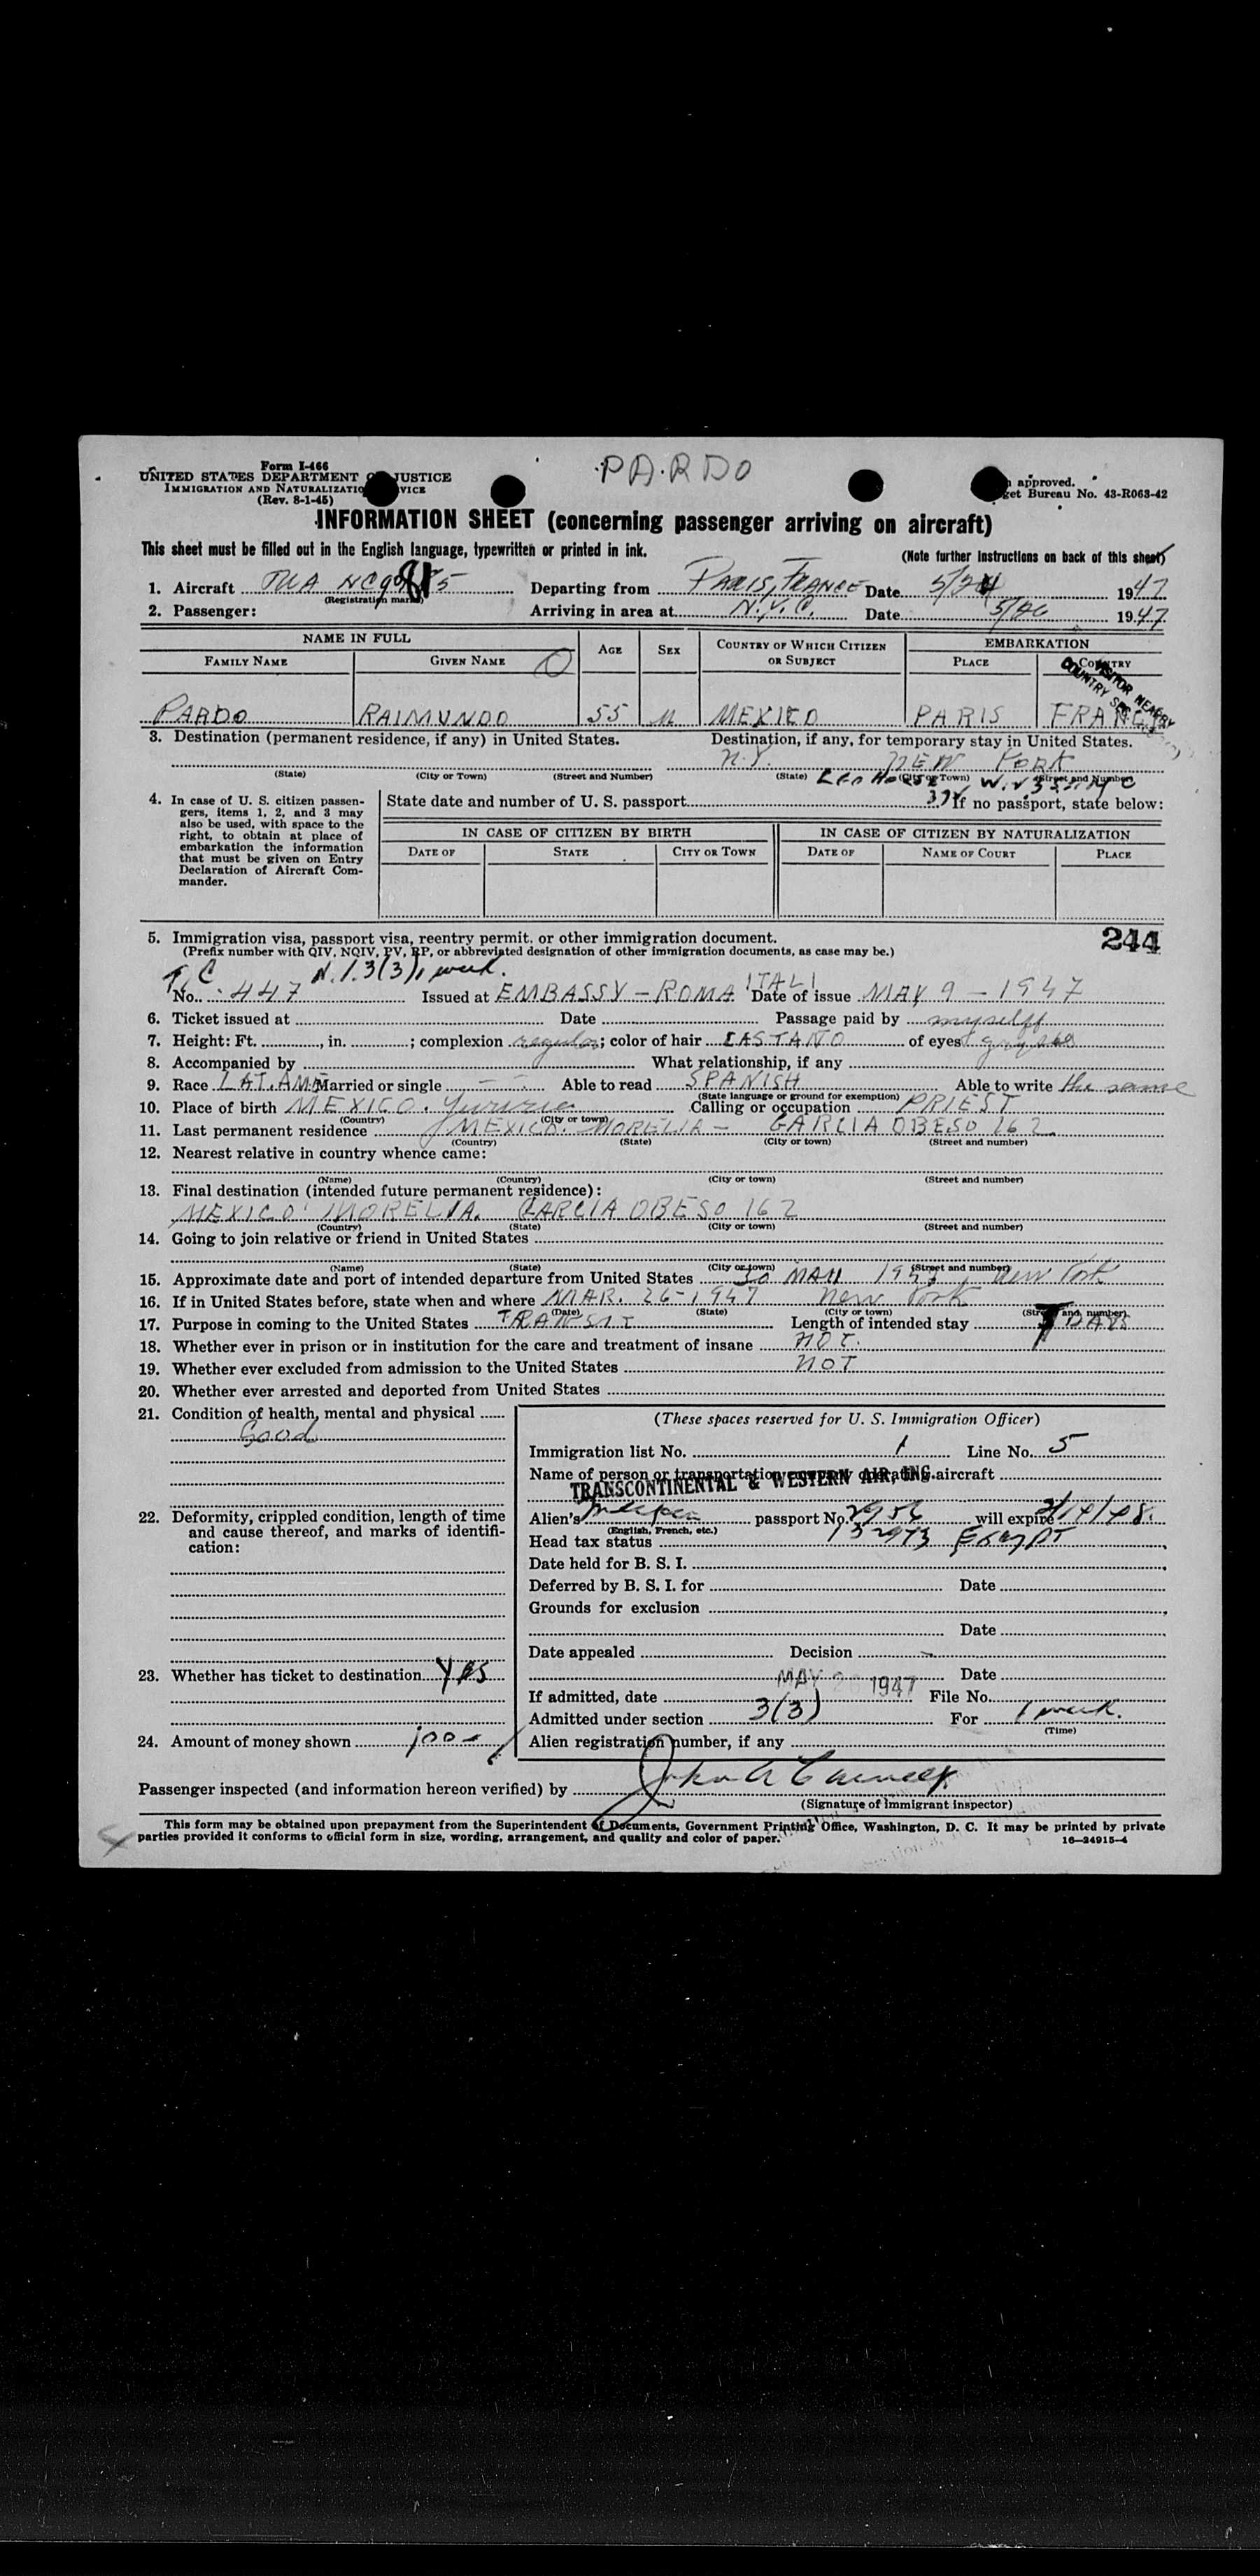 PARDO
Form I-466
UNITED STATES DEPARTMENT OF JUSTICE
IMMIGRATION AND NATURALIZATION SERVICE
(Rev. 8-1-45)
approved.
get Bureau No. 43-R063-42
INFORMATION SHEET (concerning passenger arriving on aircraft)
This sheet must be filled out in the English language, typewritten or printed in ink.
(Note further instructions on back of this sheet)
1. Aircraft TWA Departing from PARIS, FRANCE Date 5/24 1947
(Registration marks)
2. Passenger: Arriving in area at N.Y.C. Date 5/26 1947
NAME IN FULL AGE SEX COUNTRY OF WHICH CITIZEN OR SUBJECT EMBARKATION
FAMILY NAME GIVEN NAME PLACE COUNTRY
PARDO RAIMUNDO 55 M MEXICO PARIS FRANCE
3. Destination (permanent residence, if any) in United States. Destination, if any, for temporary stay in United States.
N.Y. NEW YORK
(State) (City or Town) (Street and Number) (State) (City or Town) (Street and Number)
LEO HOUSE
4. In case of U. S. citizen passengers, items 1, 2, and 3 may also be used, with space to the right, to obtain at place of embarkation the information that must be given on Entry Declaration of Aircraft Commander.
State date and number of U. S. passport If no passport, state below:
IN CASE OF CITIZEN BY BIRTH IN CASE OF CITIZEN BY NATURALIZATION
DATE OF STATE CITY OR TOWN DATE OF NAME OF COURT PLACE
5. Immigration visa, passport visa, reentry permit, or other immigration document. 244
(Prefix number with QIV, NQIV, PV, RP, or abbreviated designation of other immigration documents, as case may be.)
T.C. 3(3) 1 week.
No. 447 Issued at EMBASSY - ROMA ITALI Date of issue MAY 9 - 1947
6. Ticket issued at Date Passage paid by myself
7. Height: Ft. , in. ; complexion regular; color of hair CASTANO of eyes
8. Accompanied by What relationship, if any
9. Race LAT. AME Married or single Able to read SPANISH Able to write the same
(State language or ground for exemption)
10. Place of birth MEXICO. Yuriria Calling or occupation PRIEST
(Country) (City or town)
11. Last permanent residence MEXICO. MORELIA - GARCIA OBESO 162
(Country) (State) (City or town) (Street and number)
12. Nearest relative in country whence came:
(Name) (Country) (City or town) (Street and number)
13. Final destination (intended future permanent residence):
MEXICO MORELIA. GARCIA OBESO 162
(Country) (State) (City or town) (Street and number)
14. Going to join relative or friend in United States
(Name) (State) (City or town) (Street and number)
15. Approximate date and port of intended departure from United States 30 1947, New York
16. If in United States before, state when and where MAR. 26-1947 New York
(Date) (State) (City or town) (Street and number)
17. Purpose in coming to the United States TRANSIT Length of intended stay 7 DAYS
18. Whether ever in prison or in institution for the care and treatment of insane NOT.
19. Whether ever excluded from admission to the United States NOT
20. Whether ever arrested and deported from United States
21. Condition of health, mental and physical
Good
22. Deformity, crippled condition, length of time and cause thereof, and marks of identification:
23. Whether has ticket to destination Yes
24. Amount of money shown 100-
(These spaces reserved for U. S. Immigration Officer)
Immigration list No. 1 Line No. 5
Name of person or transportation company operating aircraft
TRANSCONTINENTAL & WESTERN AIR, INC.
Alien's passport No. 2956 will expire 2/14/48.
(English, French, etc.)
Head tax status Exempt
Date held for B. S. I.
Deferred by B. S. I. for Date
Grounds for exclusion
Date
Date appealed Decision
Date
If admitted, date MAY 26 1947 File No.
Admitted under section 3(3) For 1 week.
(Time)
Alien registration number, if any
Passenger inspected (and information hereon verified) by
(Signature of Immigrant inspector)
This form may be obtained upon prepayment from the Superintendent of Documents, Government Printing Office, Washington, D. C. It may be printed by private
parties provided it conforms to official form in size, wording, arrangement, and quality and color of paper. 16-24915-4